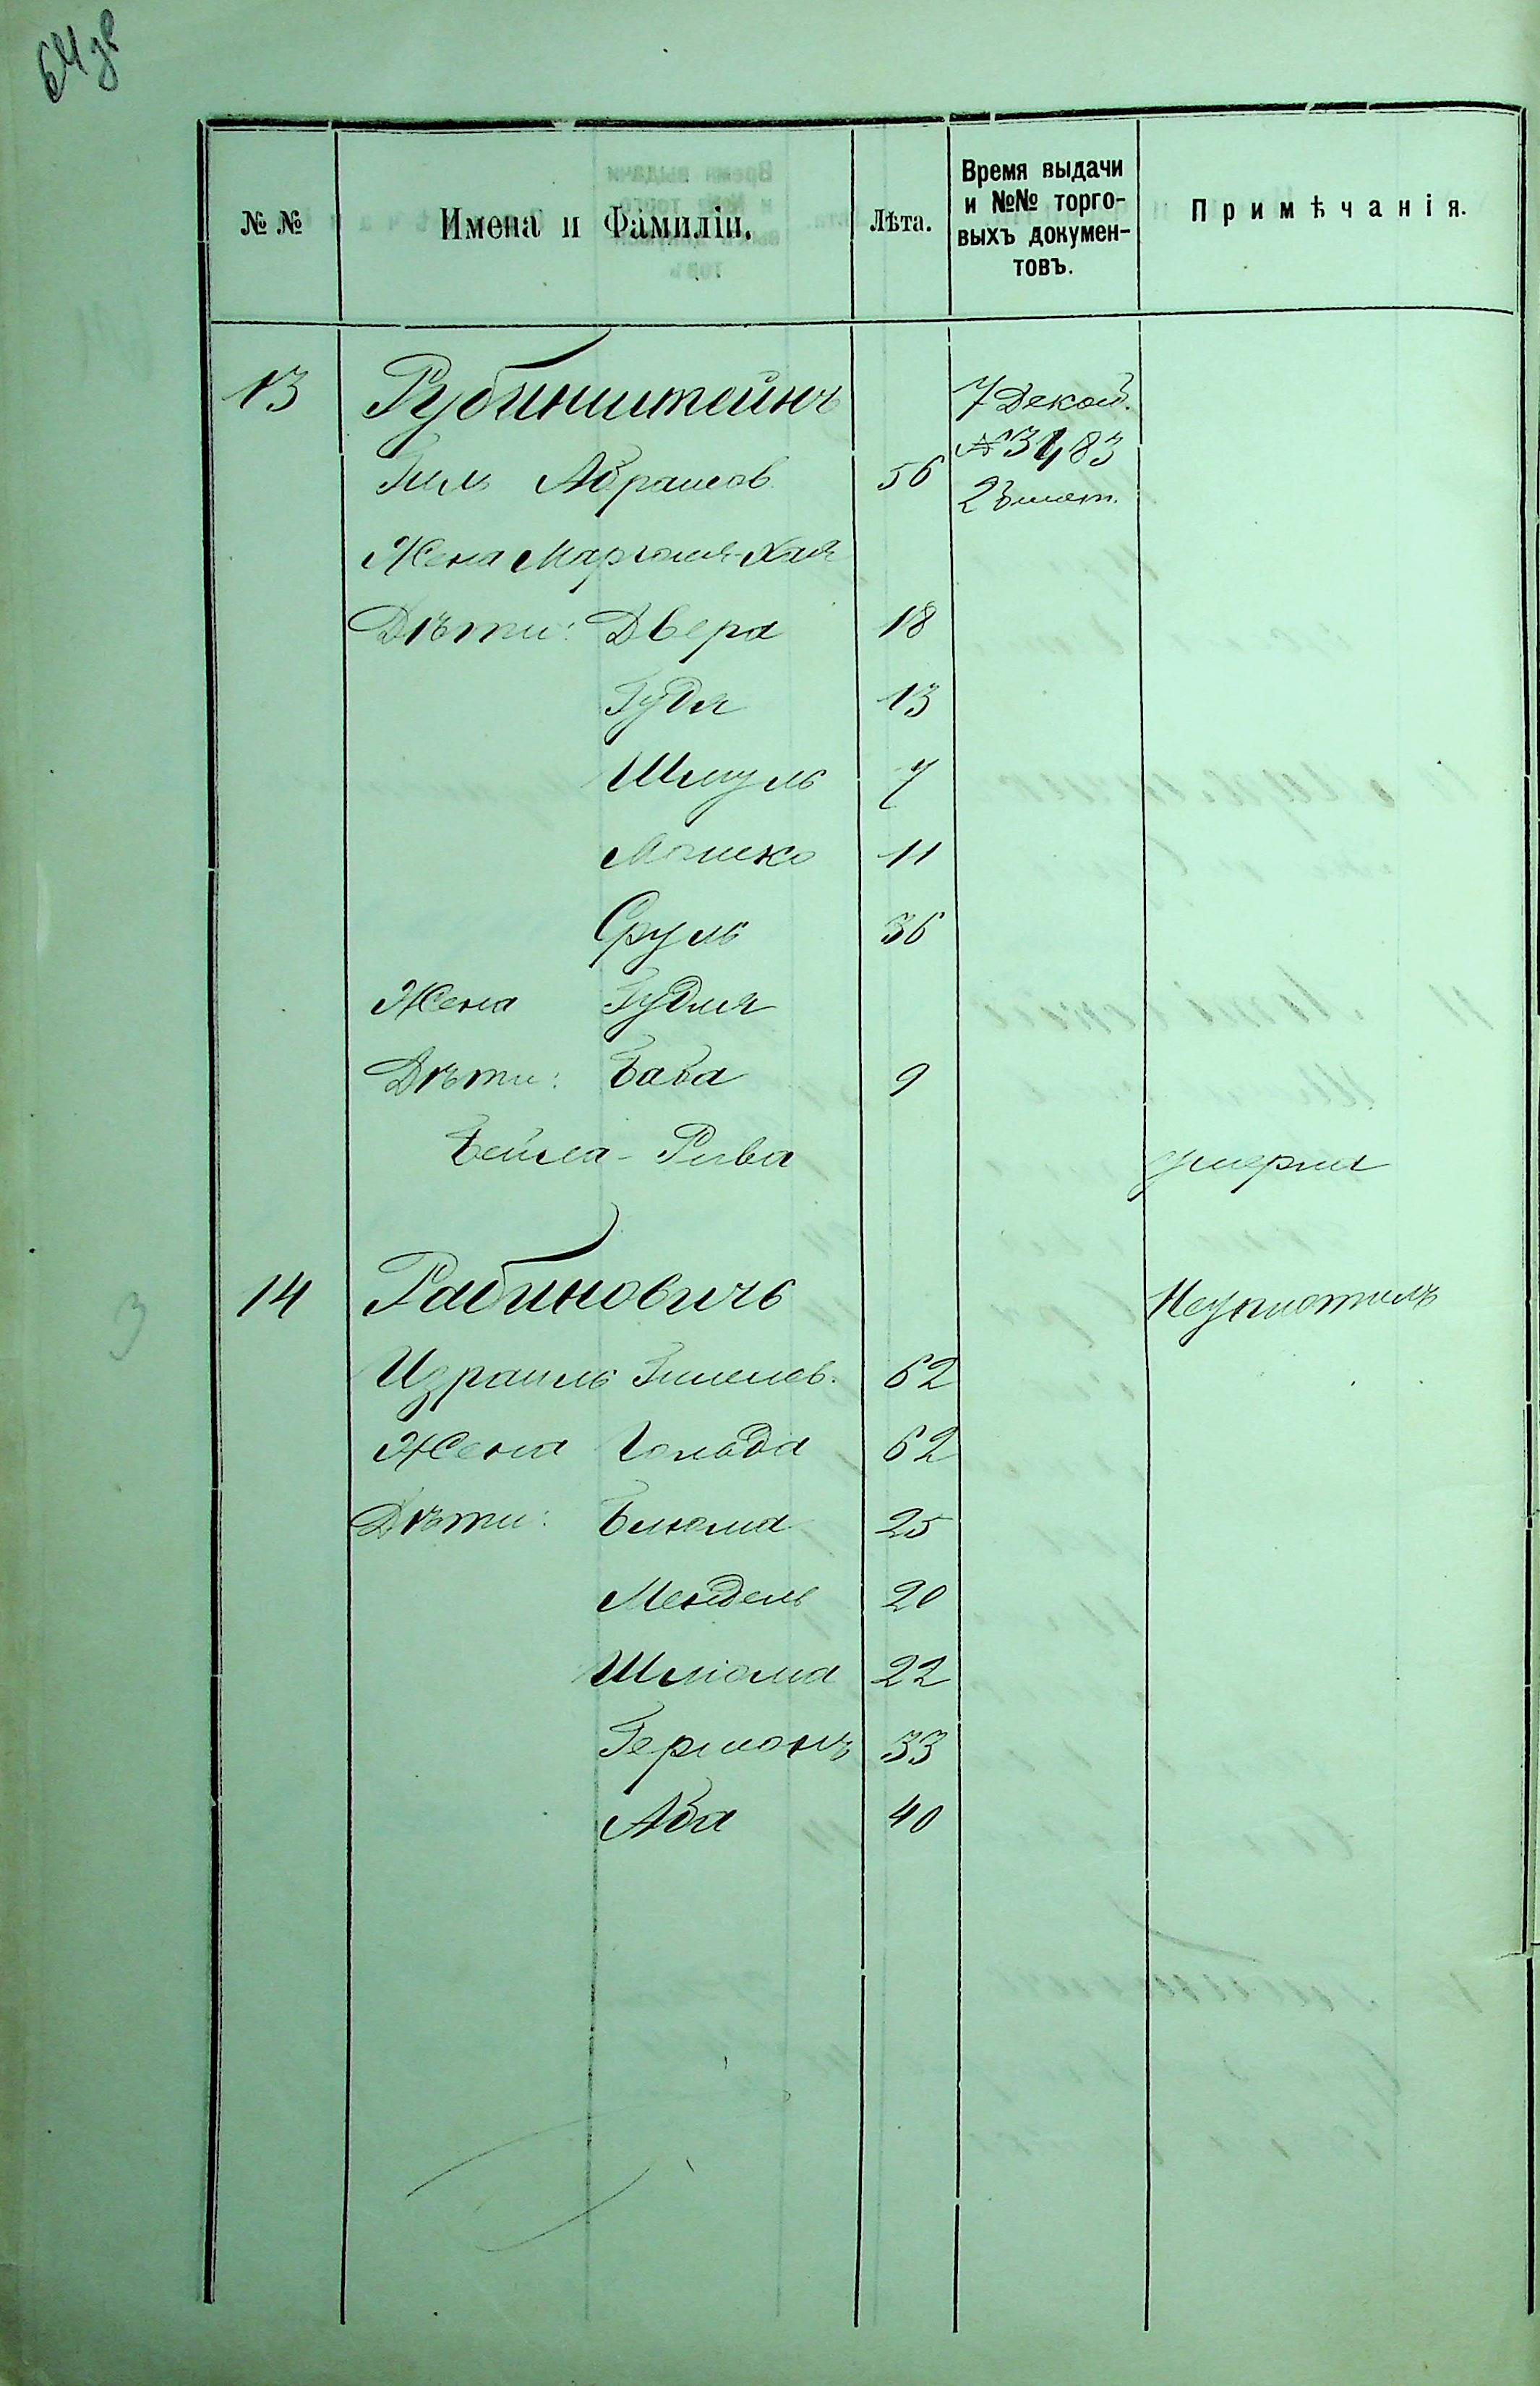 64 зв
№ №
Имена и Фамиліи.
Лѣта.
Время выдачи
и №№ торго-
выхъ докумен-
товъ.
Примѣчанія.
13 Рубинштейнъ 7 Декаб.
№ 3483
Гиль Абрамов. 56 2 билет.
Жена Марголя-Хая
Дѣти: Двера 18
Гудя 13
Шмуль 7
Мошко 11
Сруль 36
Жена Гудля
Дѣти: Баба 9
Бейла-Рива умерла
14 Рабиновичъ Неуплотилъ
Израиль Зимелев. 62
Жена Гольда 62
Дѣти: Блюма 25
Мендель 20
Шлюма 22
Германъ 33
Аба 40
3